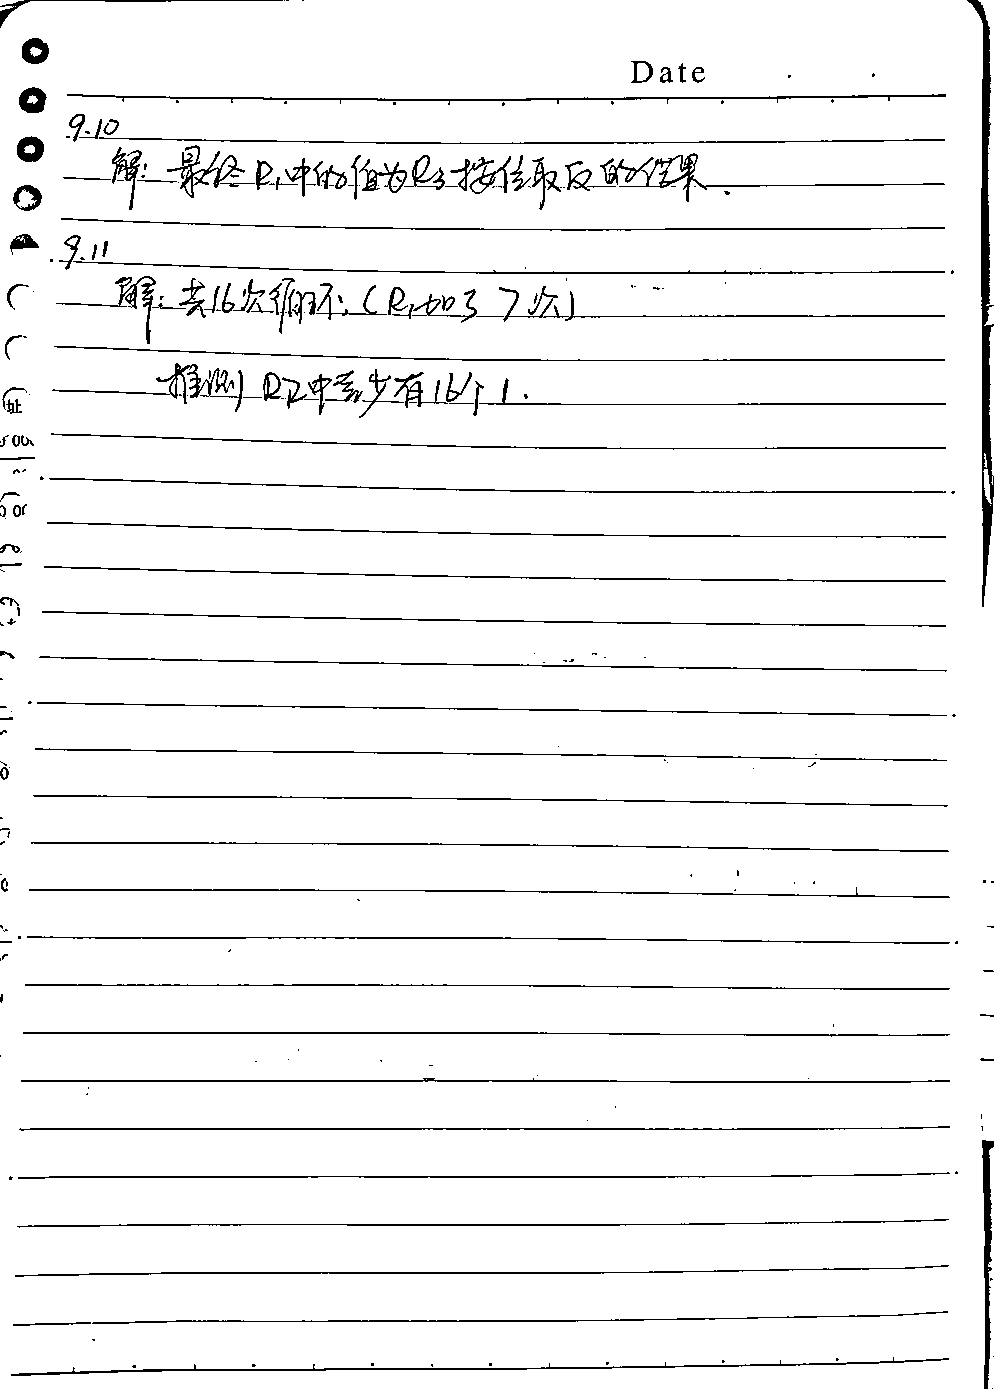 Date
9.10
解: 最终R1中的值为R3按位取反的结果.
9.11
解: 共16次循环; (R1加了7次)
推测R2中至少有16个1.